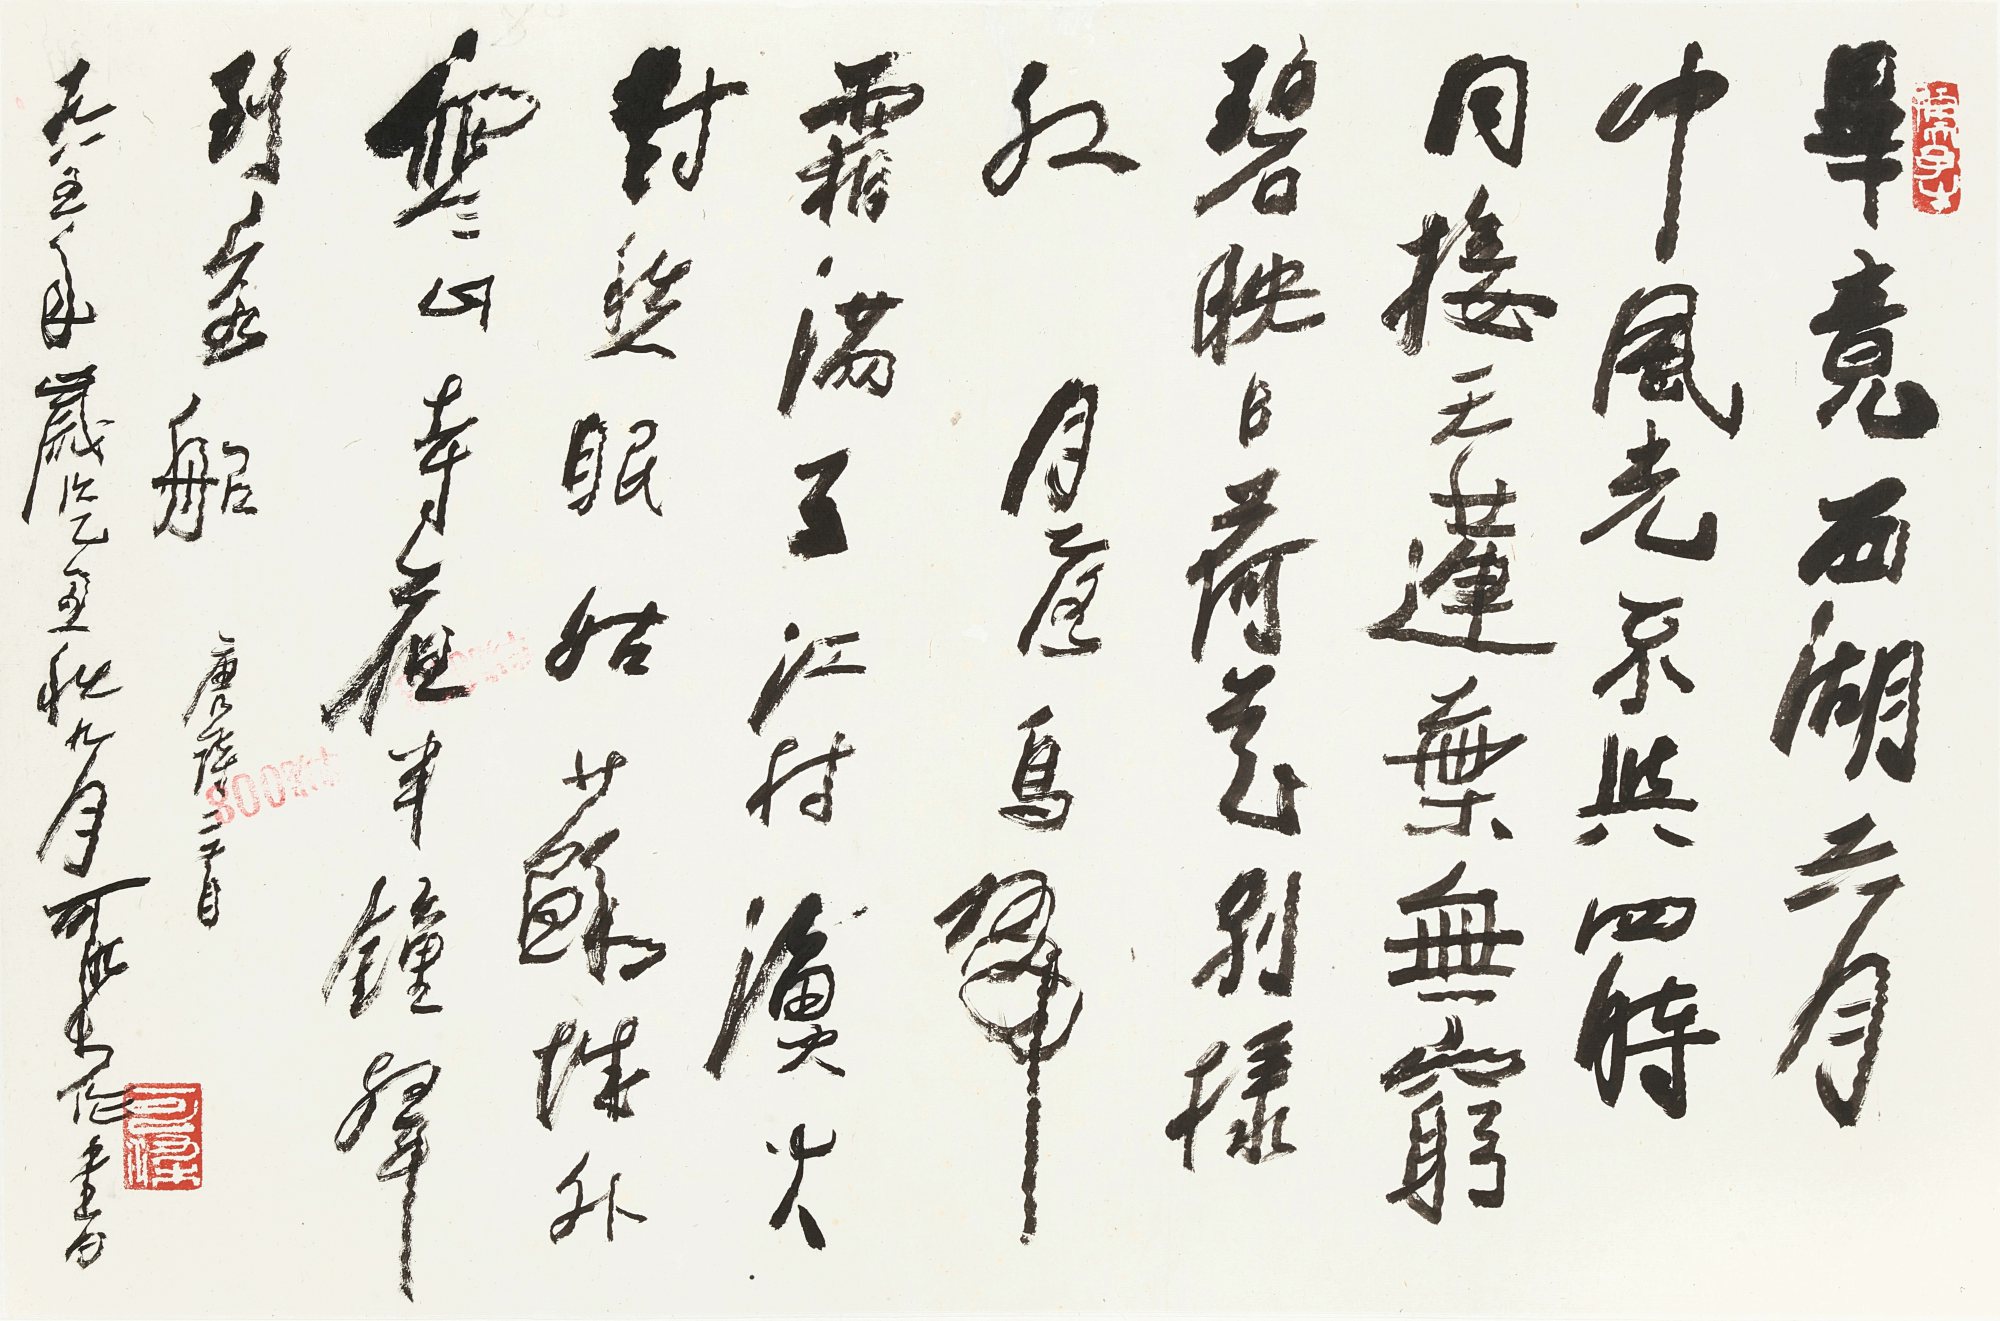 畢竟西湖六月
中風光不與四時
同接天蓮葉無窮
碧映日荷花別樣
紅 月落烏啼
霜滿天江村漁火
對愁眠姑蘇城外
寒山寺夜半鐘聲
到客船 唐詩二首
一九八五年歲次乙丑秋九月可染
可染